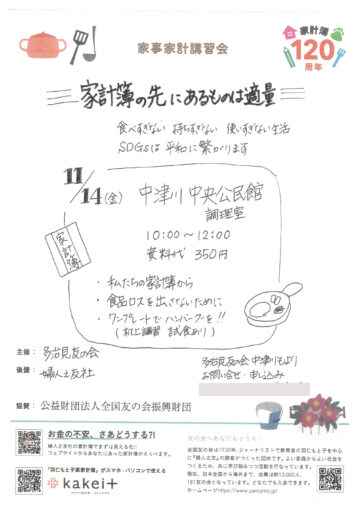 家事家計講習会
家計簿
120
周年
家計簿の先にあるものは適量
食べすぎない 持ちすぎない 使いすぎない生活
SDGsは 平和に繋がります
11/14(金) 中津川 中央公民館
調理室
10:00~12:00
資料代 350円
家計簿
・私たちの家計簿から
・食品ロスを出さないために
・ワンプレートで ハンバーグを!!
(机上講習 試食あり)
主催: 多治見友の会
後援: 婦人之友社
多治見友の会 中津川もより
お問い合せ・申し込み
協賛: 公益財団法人全国友の会振興財団
お金の不安、さあどうする?!
婦人之友社の家計簿でまずは見える化!
ウェブサイトからあなたにあった家計簿がえらべます。
「羽仁もと子案家計簿」がスマホ・パソコンで使える
kakei+
友の会へあなたもどうぞ!
全国友の会は1930年、ジャーナリストで教育者の羽仁もと子を中心
に『婦人之友』の読者がつくった団体です。よい家庭からよい社会を
つくるため、共に学び励みつつ活動を行なっています。
現在、日本全国、さらに海外まで、会員は約13,000人、
181友の会となっています。どなたでも入会できます。
ホームページhttps://www.zentomo.jp/